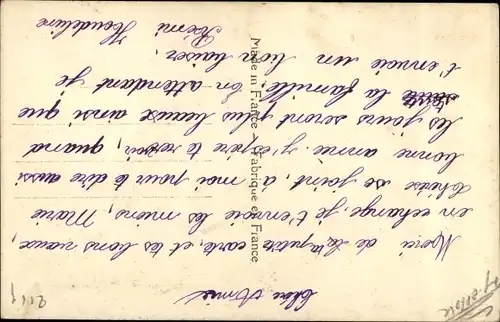 Chère Amie
Merci de ta petite carte, et tes bons vœux,
en echange, je t'envoie les miens, Marie
Thérèse se joint, a moi pour te dire aussi
bonne année. J'espère te revoir, quand
les jours seront plus beaux ainsi que
toute la famille. En attendant je
t'envoie un bon baiser.
Rémi Houdelière
Made in France - Fabriqué en France